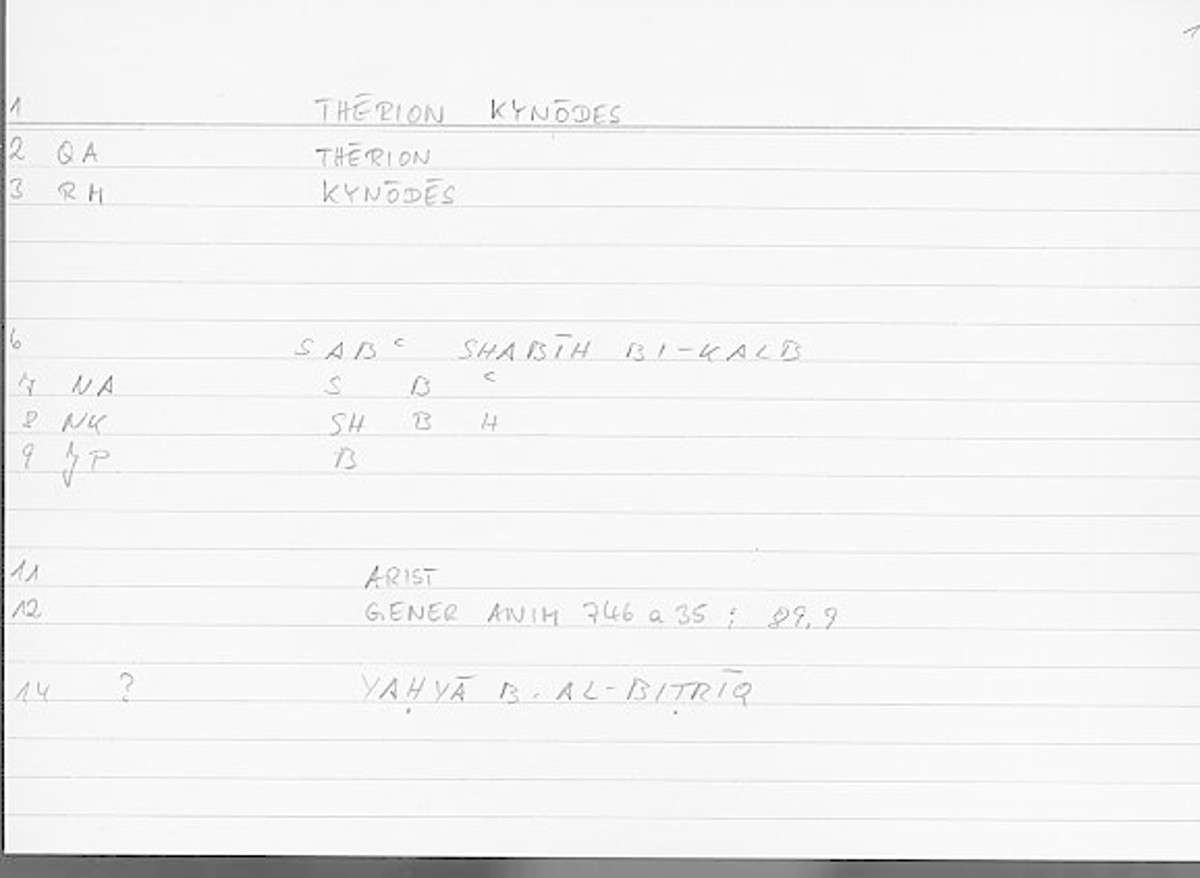 1
1 THĒRION KYNŌDES
2 QA THĒRION
3 RH KYNŌDĒS
6 SABʿ SHABĪH BI-KALB
7 NA S B ʿ
8 NK SH B H
9 JP B
11 ARIST
12 GENER ANIM 746 a 35 ; 89,9
14 ? YAḤYĀ B. AL-BIṬRĪQ